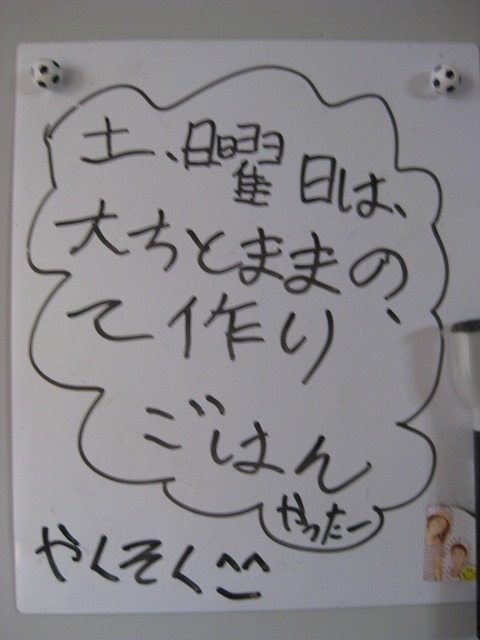 土、曜日は、
大ちとままの、
て作り
ごはん
やったー
やくそく^^